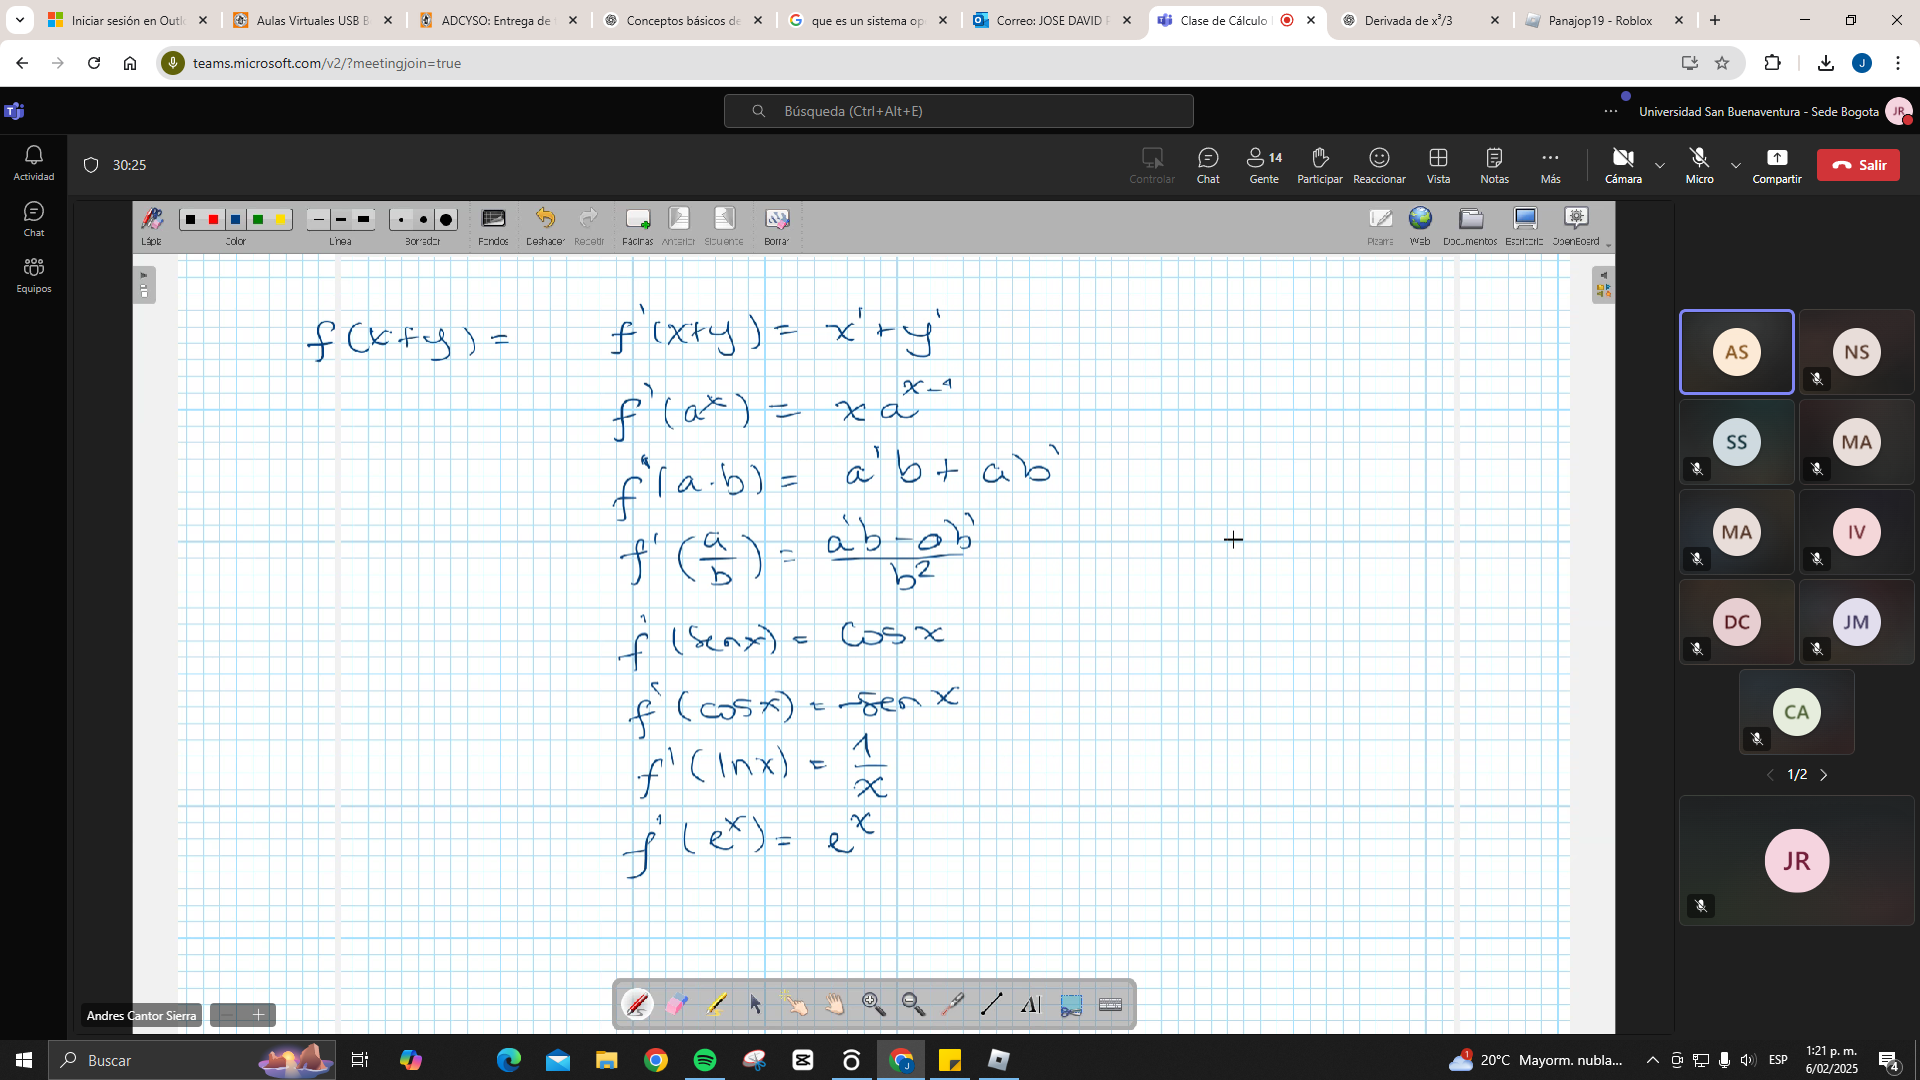 Iniciar sesión en Outl
Aulas Virtuales USB B
ADCYSO: Entrega de
Conceptos básicos de
que es un sistema op
Correo: JOSE DAVID
Clase de Cálculo
Derivada de x³/3
Panajop19 - Roblox
teams.microsoft.com/v2/?meetingjoin=true
J
Búsqueda (Ctrl+Alt+E)
Universidad San Buenaventura - Sede Bogota
JR
Actividad
Chat
Equipos
30:25
Controlar
Chat
14
Gente
Participar
Reaccionar
Vista
Notas
Más
Cámara
Micro
Compartir
Salir
Lápiz
Color
Línea
Borrador
Fondos
Deshacer
Repetir
Páginas
Anterior
Siguiente
Borrar
Pizarra
Web
Documentos
Escritorio
OpenBoard
f(x+y) = f'(x+y) = x'+y'
f'(aˣ) = x aˣ⁻¹
f'(a·b) = a'b + ab'
f'(a/b) = a'b-ab'/b²
f'(senx) = cosx
f'(cosx) = -senx
f'(lnx) = 1/x
f'(eˣ) = eˣ
AS
NS
SS
MA
MA
IV
DC
JM
CA
1/2
JR
Andres Cantor Sierra
Buscar
20°C Mayorm. nubla...
ESP
1:21 p. m.
6/02/2025
4